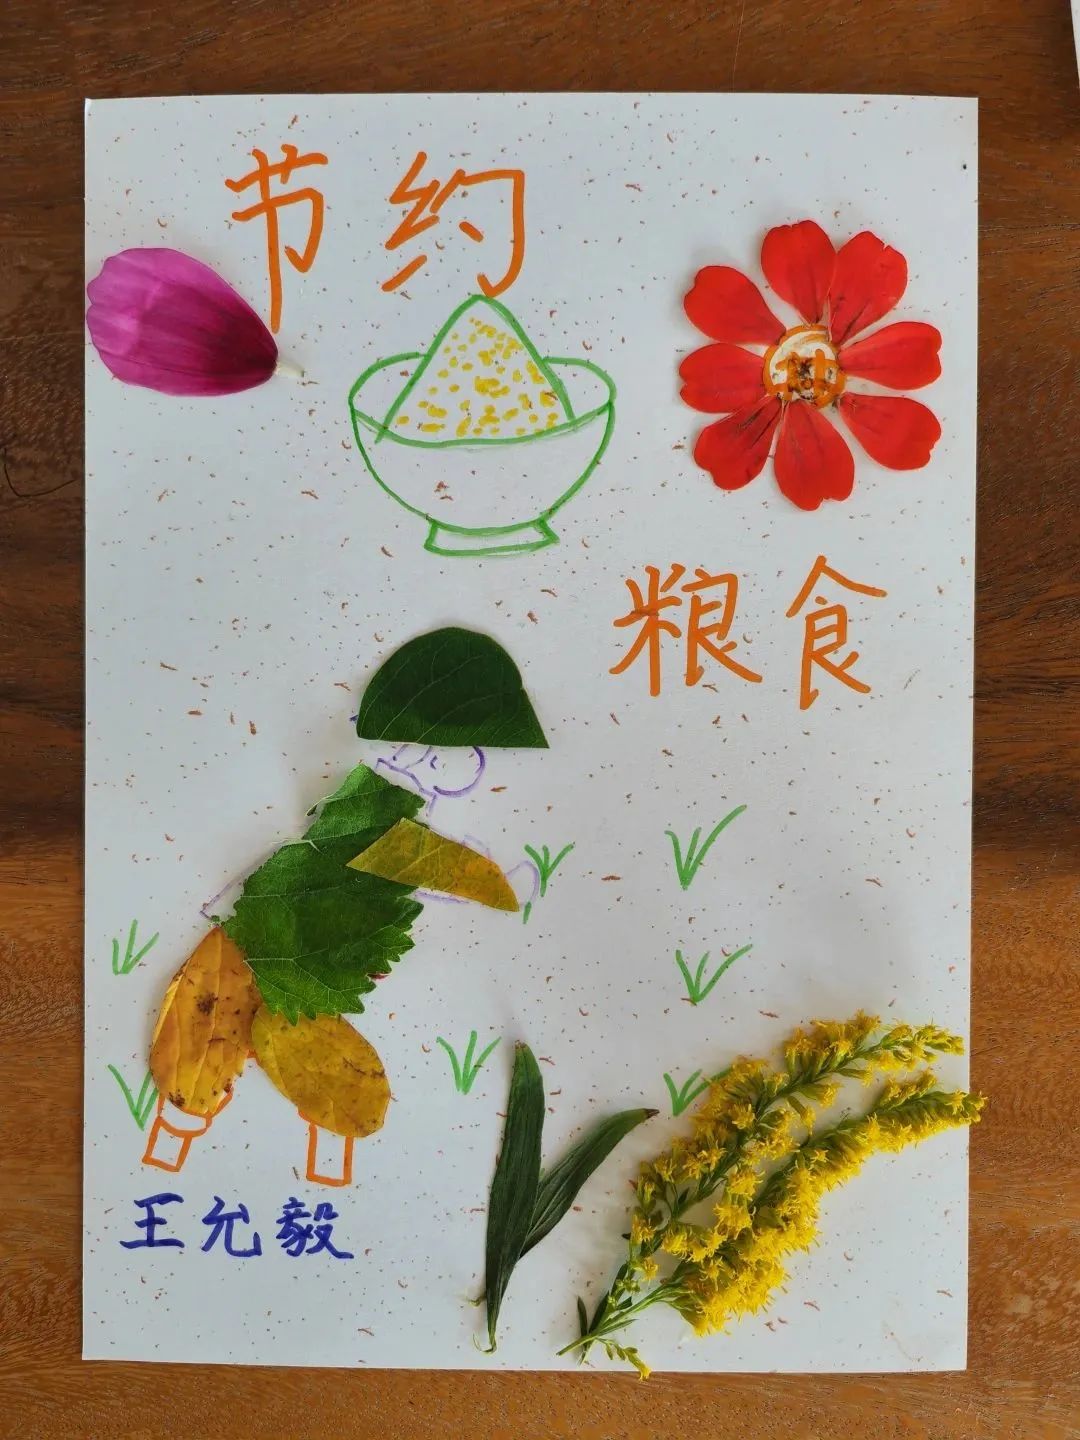 节约
粮食
王允毅